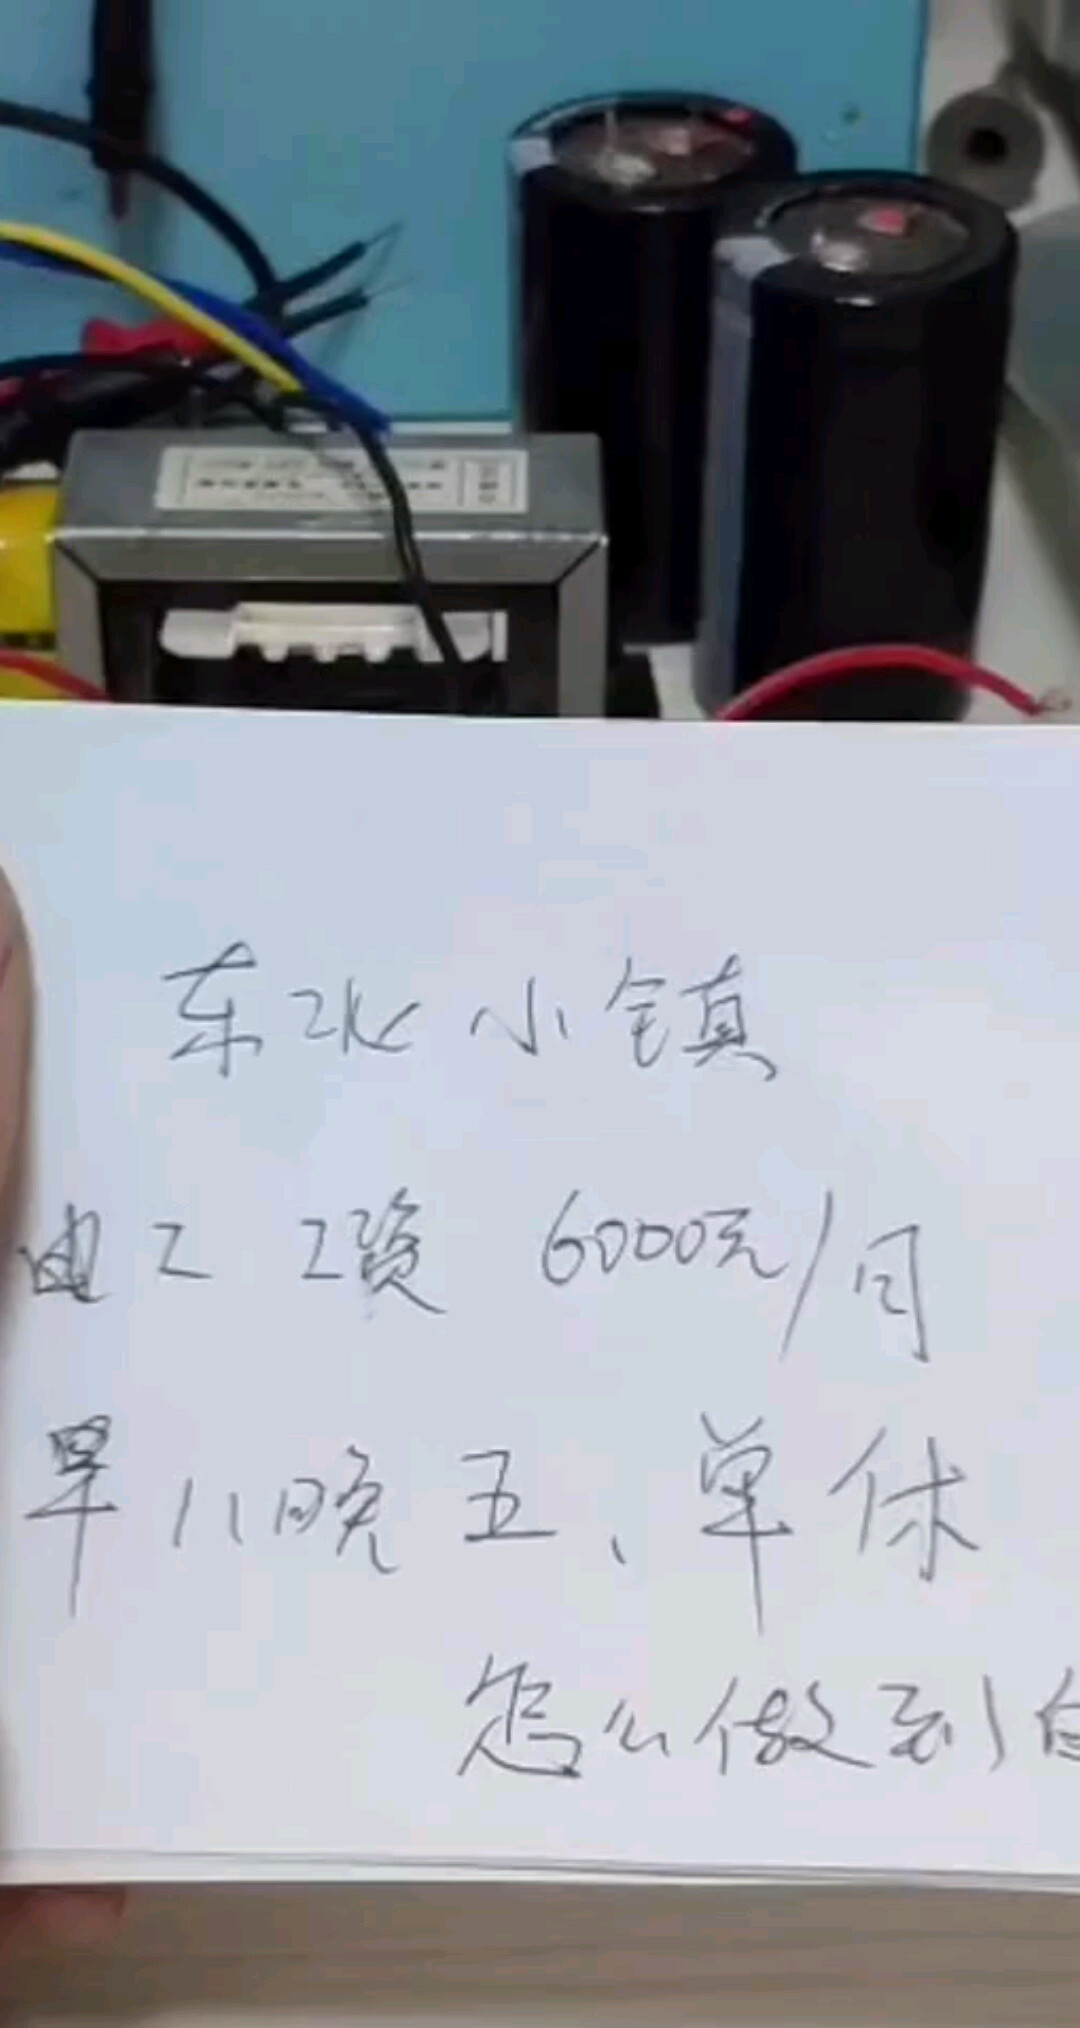 东北小镇
电工 工资 6000元/月
早八晚五、单休
怎么做到